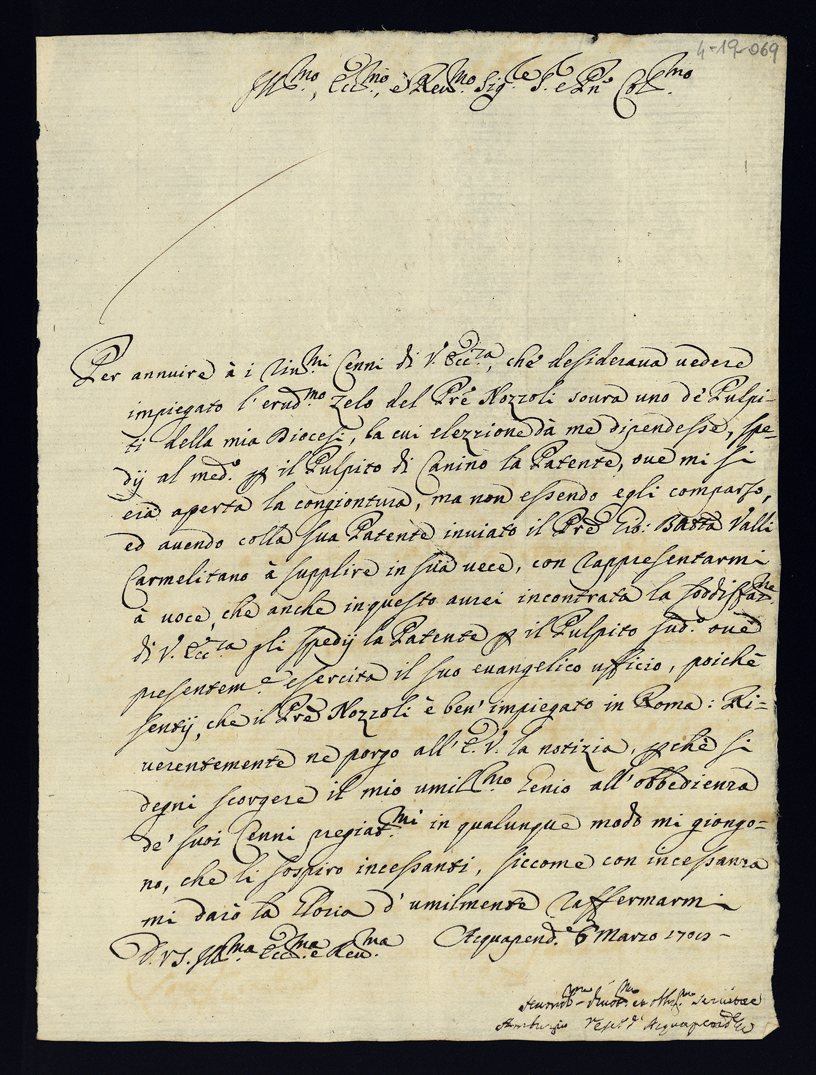 4-19-069
Ill.mo, Ecc.mo, e Reu.mo Sig.re S. e Pn. Col.mo
Per annuire à i riu.mi Cenni di V. Ecc.za, chè desideraua uedere
impiegato l'erud.mo zelo del Prè Nozzoli soura uno dè Pulpi-
ti della mia Diocesi, la cui elezzione dà me dipendesse, spe-
dij al med.o p il Pulpito di Canino la Patente, oue mi si
era aperta la congiontura, ma non essendo egli comparso,
ed auendo colla sua Patente inuiato il Prè Gio. Batta Valli
Carmelitano à supplire in sua uece, con rappresentarmi
à uoce, che anche in questo aurei incontrata la soddisfaz.ne
di V. Ecc.za gli spedij la Patente p il Pulpito sud.o ouè
presentem.e esercita il suo euangelico ufficio, poichè
sentij, che il Prè Nozzoli è ben' impiegato in Roma: Ri-
uerentemente ne porgo all' E.V. la notizia, pchè si
degni scorgere il mio umil.mo Genio all'obbedienza
de' suoi Cenni pregiat.mi in qualunque modo mi giongo-
no, che li sospiro incessanti, siccome con incessanza
mi darò la Gloria d'umilmente raffermarmi
D. VS. Ill.ma Ecc.ma e Reu.ma Acquapend.e 6 Marzo
diuot. et obl.mo Seruitore
Ambrogio Acquapend.e